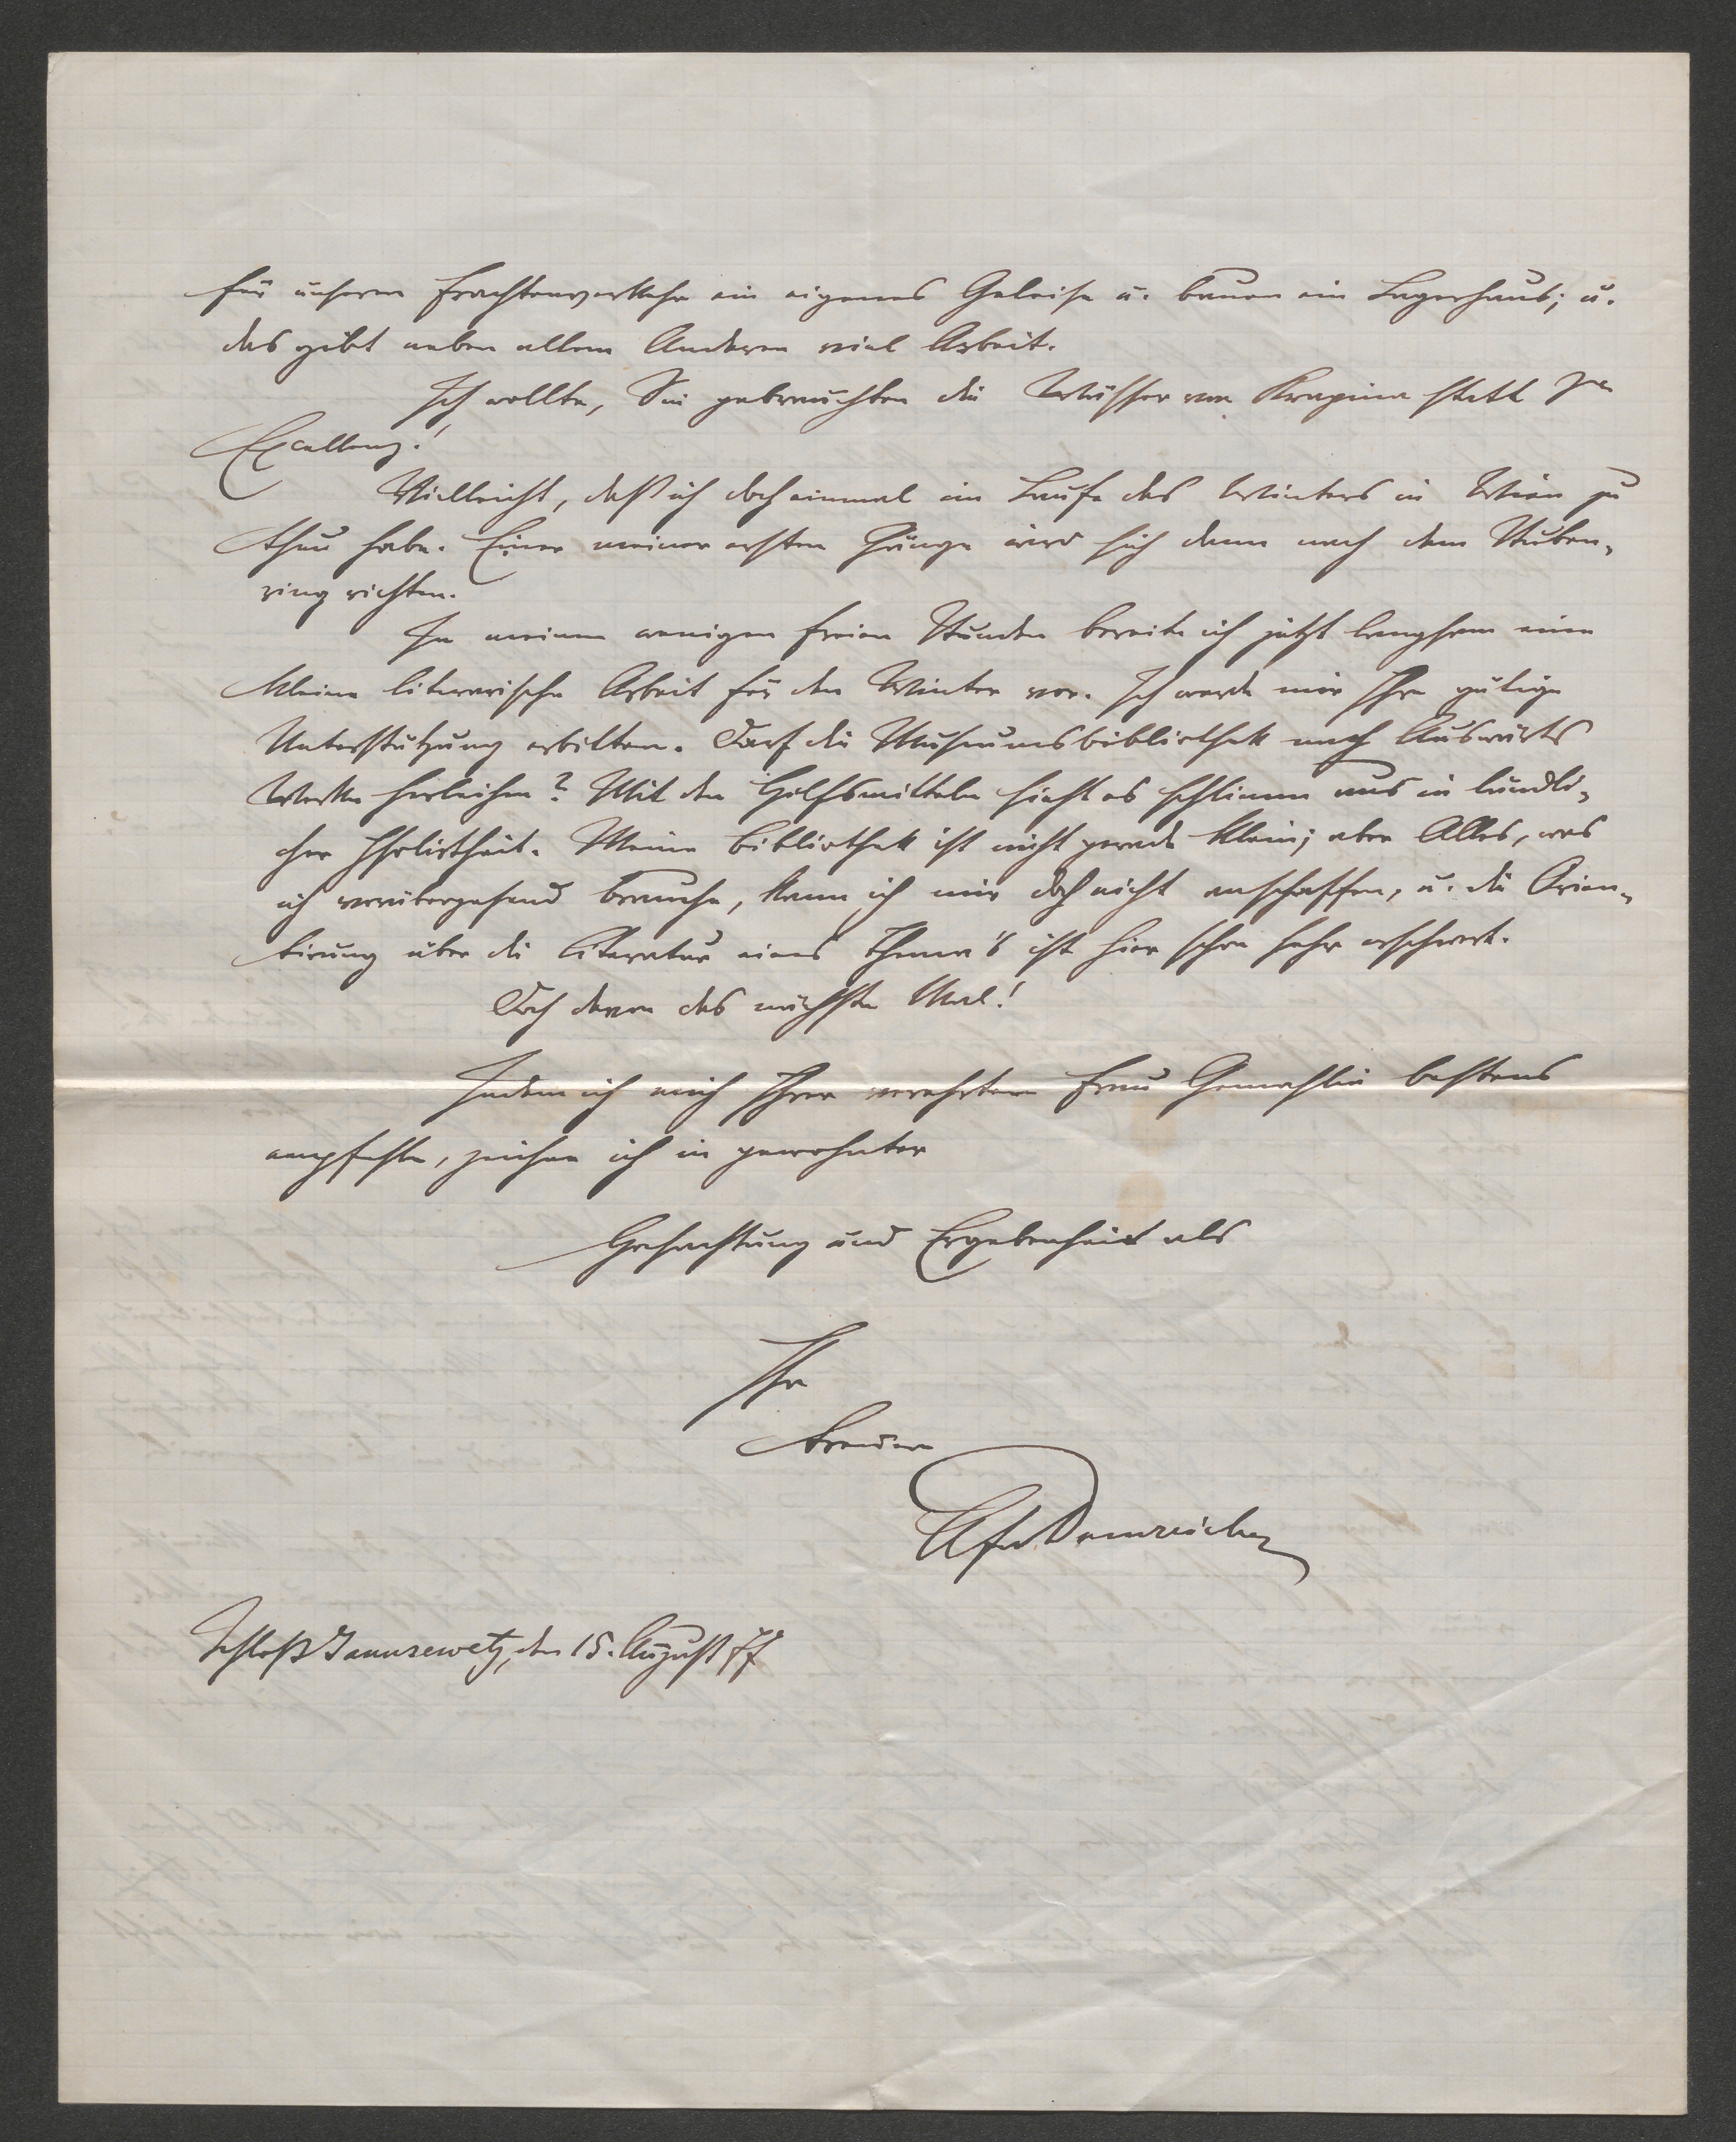 für unseren Frachtenverkehr ein eigenes Geleise u. bauen ein Lagerhaus; u.
das gibt neben allem Anderen viel Arbeit.
Ich wollte, Sie gebrauchten die Wässer von Krapina statt Sr
Excellenz!
Vielleicht, daß ich doch einmal im Laufe des Winters in Wien zu
thun habe. Einer meiner ersten Gänge wird sich dann nach dem Stuben-
ring richten.
In meinen wenigen freien Stunden bereite ich jetzt langsam eine
kleine literarische Arbeit für den Winter vor. Ich werde mir Ihre gütige
Unterstützung erbitten. Darf die Museumsbibliothek nach Auswärts
Werke herleihen? Mit den Hilfsmitteln sieht es schlimm aus in ländli-
cher Isolirtheit. Meine Bibliothek ist nicht gerade klein; aber Alles, was
ich vorübergehend brauche, kann ich mir doch nicht anschaffen, u. die Orien-
tirung über die Literatur eines Thema's ist hier schon sehr erschwert.
Doch davon das nächste Mal!
Indem ich mich Ihrer verehrten Frau Gemahlin bestens
empfehle, zeichne ich in gewohnter
Hochachtung und Ergebenheit als
Ihr
treuer
Afr Damreicher
Schloß Januševetz, den 15. August 77